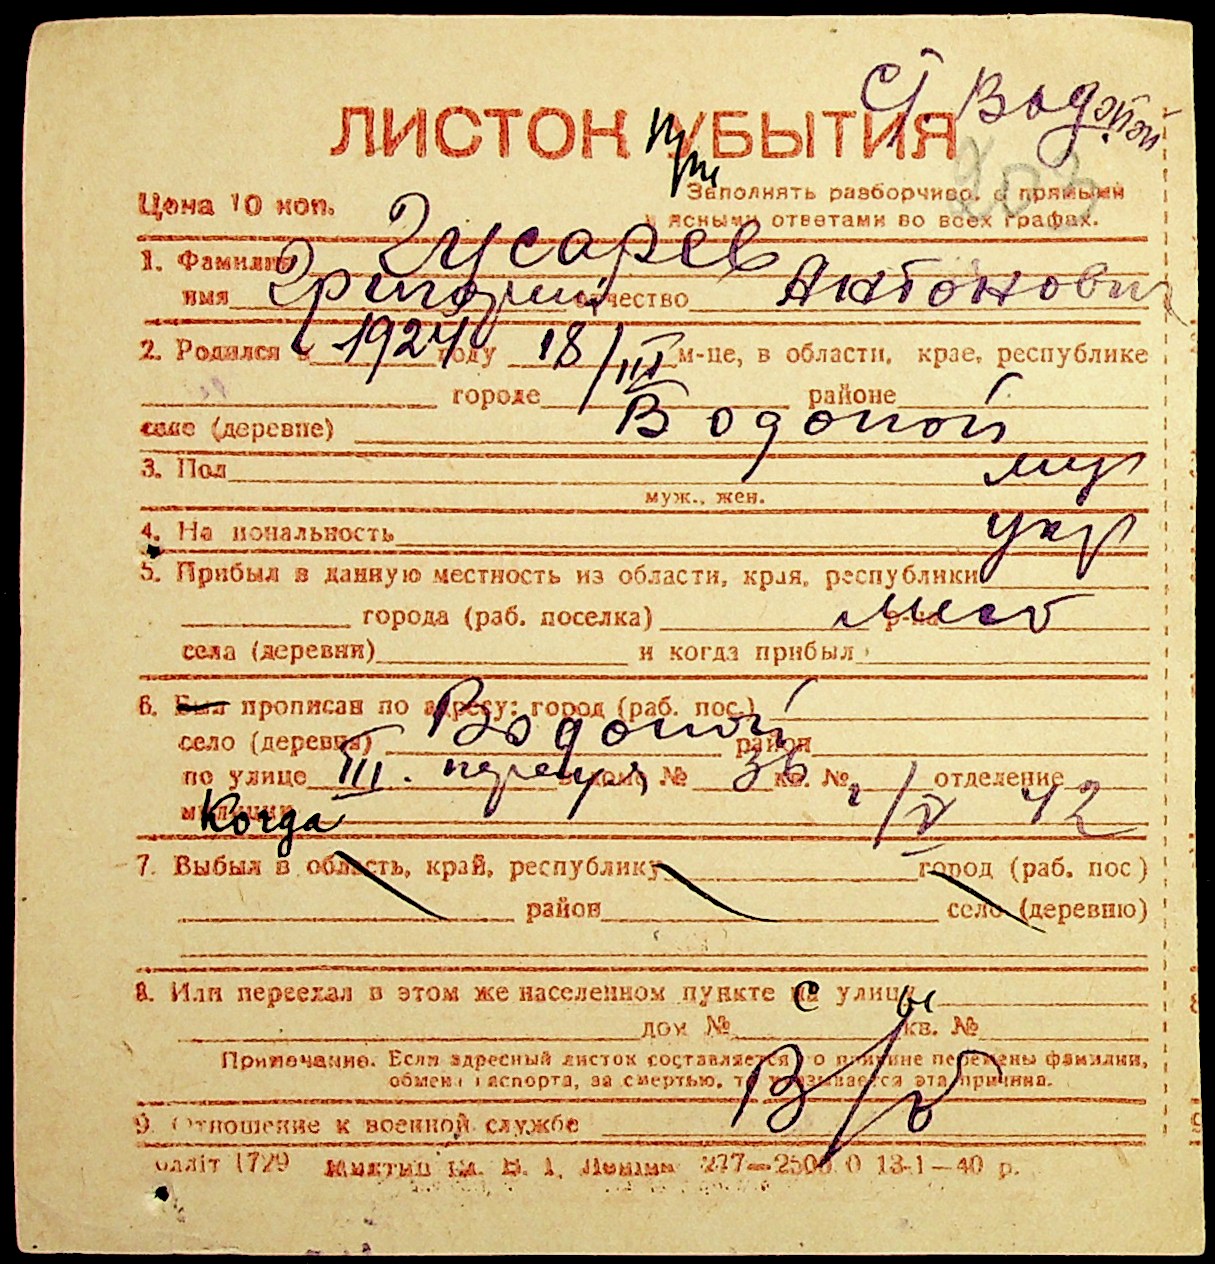 ст. Водопой
ЛИСТОК УБЫТИЯ
При
203
Цена 10 коп.
Заполнять разборчиво, с прямыми
и ясными ответами во всех графах.
1. Фамилия Гусарев
имя Григорий отчество Антонович
2. Родился в 1924 году 18/III м-це, в области, крае, республике
городе районе
селе (деревне) Водопой
3. Пол муж
муж., жен.
4. Национальность укр
5. Прибыл в данную местность из области, края, республики
города (раб. поселка) р-на мест
села (деревни) и когда прибыл
6. Был прописан по адресу: город (раб. пос.)
село (деревня) Водопой район
по улице III. переул, в доме № 36 кв. № отделение
милиции Когда 1/IV 42
7. Выбыл в область, край, республику город (раб. пос)
район село (деревню)
8. Или переехал в этом же населенном пункте на улицу
дом № с кв. №
Примечание. Если адресный листок составляется по причине перемены фамилии,
обмена паспорта, за смертью, то указывается эта причина.
9. Отношение к военной службе В/б
олліт 1729 277—2500.0 13-1—40 р.